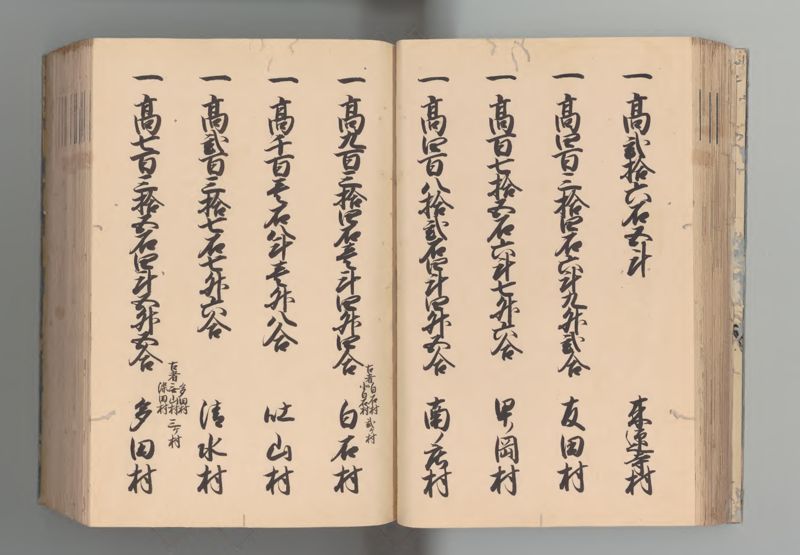 一高弐拾六石五斗 来迎寺村
一高四百三拾四石六斗九升弐合 友田村
一高百七拾五石六斗七升六合 甲ノ岡村
一高四百八拾弐石四斗四升五合 南ノ庄村
一高九百三拾四石壱斗四升四合 白石村
古者白石村
小白石村 弐ケ村
一高千百壱石八斗壱升八合 吐山村
一高弐百三拾七石七升六合 清水村
一高七百三拾五石四斗五升五合 多田村
古者 多田村
山村
染田村 三ケ村